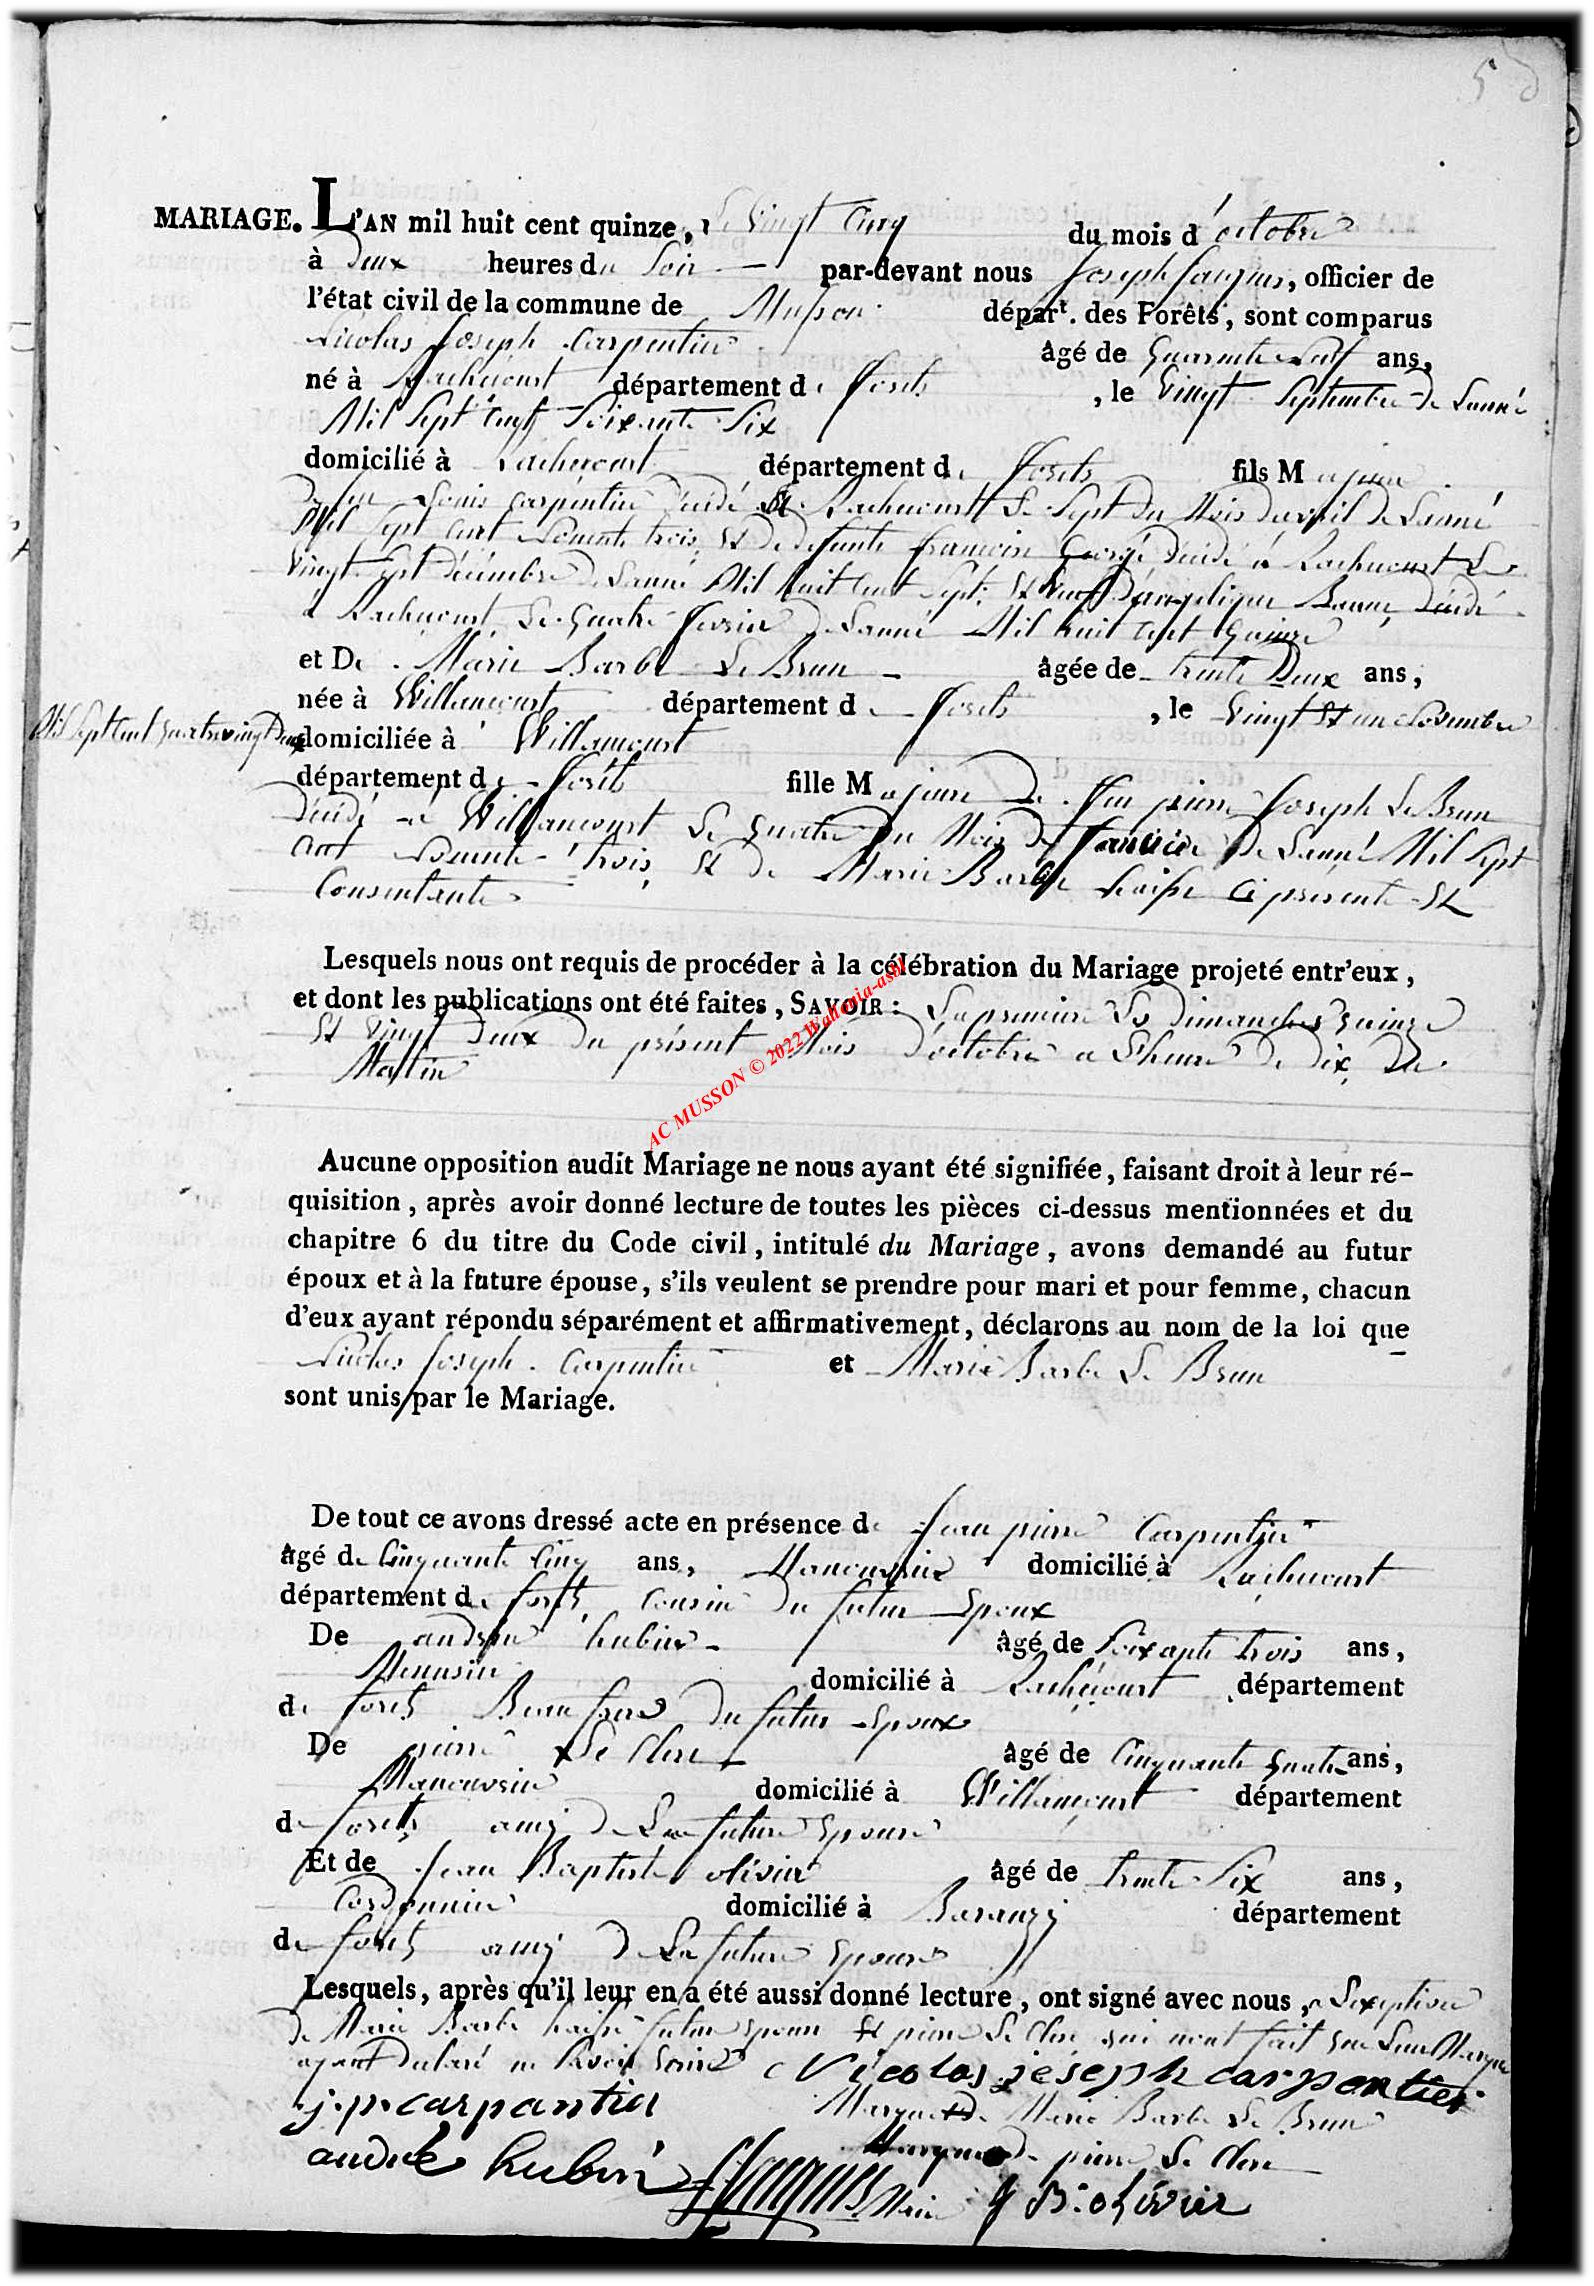 MARIAGE. L'AN mil huit cent quinze, Le Vingt Cinq du mois d'octobre
à Deux heures du Soir par-devant nous Joseph Jacques, officier de
l'état civil de la commune de Musson départ. des Forêts, sont comparus
Nicolas Joseph Carpentier âgé de quarante neuf ans,
né à Rachecourt département de forets, le Vingt Septembre de Lanné
Mil Sept Cent Soixante Six
domicilié à Rachecourt département de forets fils Majeur
De feu Louis Carpentier décidé à Rachecourt Le Sept du Mois d'avril de Lanné
Mil Sept cent Nonente trois, Et de defunte francoise George décidé à Rachecourt Le
Vingt Sept décembre de Lanné Mil huit Cent Sept, Et Veuf d'angelique décidé
à Rachecourt Le quatre fevrier de Lanné Mil huit Cent quinze
et De Marie Barbe Le Brun âgée de trente Deux ans,
née à Willancourt département de forets, le Vingt Et un Novembre
Mil Sept Cent quatre vingt Deux
domiciliée à Willancourt
département de forets fille Majeure De feu pierre Joseph Le Brun
décidé à Willancourt Le quatre Du Mois De Janvier De Lanné Mil Sept
Cent Nonente trois, Et De Marie Barbe ci présente Et
Consentante
Lesquels nous ont requis de procéder à la célébration du Mariage projeté entr'eux,
et dont les publications ont été faites, SAVOIR: La premiere Les Dimanches quinze
Et Vingt Deux Du présent Mois d'octobre a L'heure De dix Du
Matin
AC MUSSON © 2022 Wallonia-asbl
Aucune opposition audit Mariage ne nous ayant été signifiée, faisant droit à leur ré-
quisition, après avoir donné lecture de toutes les pièces ci-dessus mentionnées et du
chapitre 6 du titre du Code civil, intitulé du Mariage, avons demandé au futur
époux et à la future épouse, s'ils veulent se prendre pour mari et pour femme, chacun
d'eux ayant répondu séparément et affirmativement, déclarons au nom de la loi que
Nicolas Joseph Carpentier et Marie Barbe Le Brun
sont unis par le Mariage.
De tout ce avons dressé acte en présence de Jean pierre Carpentier
âgé de Cinquante Cinq ans, Manouvrier domicilié à Rachecourt
département de forets, Cousin Du futur Epoux
De andrée hubin âgé de Soixante trois ans,
Menusier domicilié à Rachecourt département
de forets Beau frere Du futur Epoux
De pierre Le Clerc âgé de Cinquante quatre ans,
Manouvrier domicilié à Willancourt département
de forets amy De La future Epouse
Et de Jean Baptiste olivier âgé de trente Six ans,
Cordonnier domicilié à Baranzy département
de forets amy De La future Epouse
Lesquels, après qu'il leur en a été aussi donné lecture, ont signé avec nous, a L'exeption
De Marie Barbe future epouse Et pierre Le Clerc qui n'ont fait que Leur Marque
ayant Declaré ne Savoir Ecrire Nicolas jéseph carpentier
j.p. carpantier Marque De Marie Barbe Le Brun
Marque De pierre Le Clerc
andré hubin JJacques Maire J B. olivier